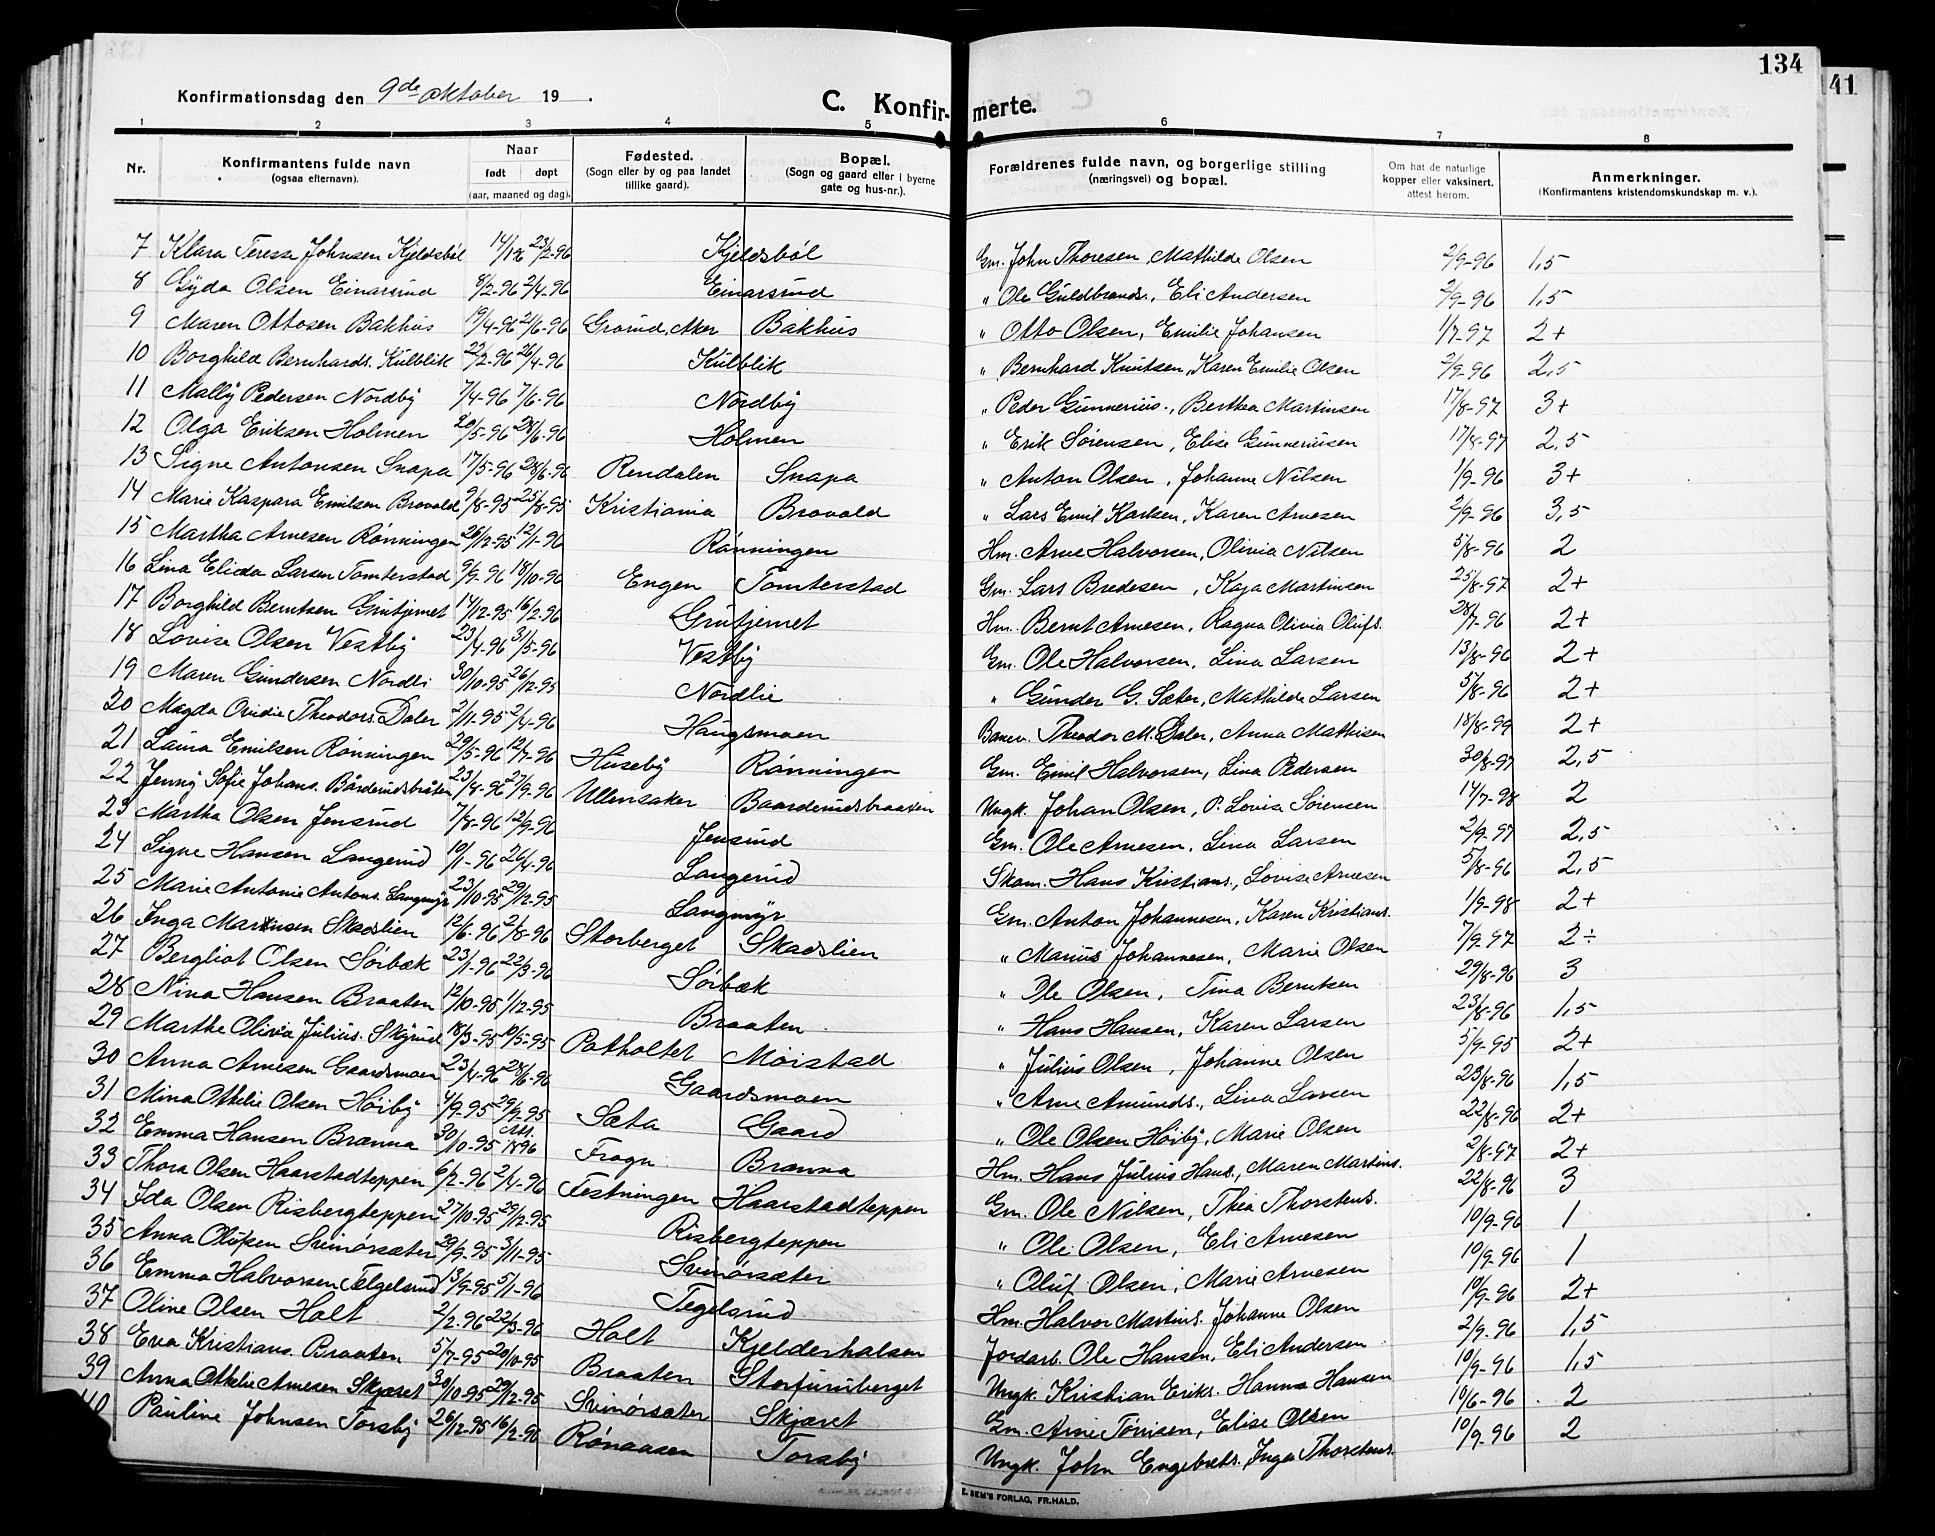 134
41
Konfirmationsdag den 9de oktober 19 .
C. Konfir- merte.
1 2 3 4 5 6 7 8
Nr. Konfirmantens fulde navn (ogsaa efternavn). Naar født døpt (aar, maaned og dag). Fødested. (Sogn eller by og paa landet tillike gaard). Bopæl. (Sogn og gaard eller i byerne gate og hus-nr.). Forældrenes fulde navn, og borgerlige stilling (næringsvei) og bopæl. Om hat de naturlige kopper eller vaksinert, attest herom. Anmerkninger. (Konfirmantens kristendomskundskap m. v.).
7 Klara Teresa Johnsen Kjeldsböl 14/1 96 23/2-96 Kjeldsböl Gm. John Thoresen, Mathilde Olsen 2/9-96 1,5
8 Gyda Olsen Einarsrud 8/2-96 2/4-96 Einarsrud " Ole Guldbrands., Eli Andersen 2/9-96 1,5
9 Maren Ottosen Bakhus 19/4-96 21/6-96 Grorud, Aker Bakhus " Otto Olsen, Emilie Johansen 1/7-97 2+
10 Borghild Bernhards. Kulblik 22/2-96 26/4-96 Kulblik " Bernhard Knutsen, Karen Emilie Olsen 2/9-96 2,5
11 Mally Pedersen Nordby 7/4-96 7/6-96 Nordby " Peder Gunnerius., Berthea Martinsen 17/8-97 3+
12 Olga Eriksen Holmen 20/5-96 28/6-96 Holmen " Erik Sørensen, Elise Gunneriusen 17/8-97 2,5
13 Signe Antonsen Snapa 17/5-96 28/6-96 Rendalen Snapa " Anton Olsen, Johanne Nilsen 1/9-96 3+
14 Marie Kaspara Emilsen Brovold 9/8-95 25/8-95 Kristiania Brovold " Lars Emil Karlsen, Karen Arnesen 2/9-96 3,5
15 Martha Arnesen Rønningen 26/12-95 12/1-96 Rønningen Hm. Arne Halvorsen, Olivia Nilsen 5/8-96 2
16 Lina Elida Larsen Tomterstad 9/9-96 18/10-96 Engen Tomterstad Gm. Lars Bredesen, Kaja Martinsen 25/8-97 2+
17 Borghild Berntsen Grutjernet 14/12-95 16/2-96 Grutjernet Hm. Bernt Arnesen, Ragna Olivia Olufs. 28/7-96 2+
18 Lovise Olsen Vestby 23/4-96 31/5-96 Vestby Gm. Ole Halvorsen, Lina Larsen 13/8-96 2+
19 Maren Gundersen Nordli 30/10-95 26/12-95 Nordlie " Gunder G. Sæter, Mathilde Larsen 5/8-96 2+
20 Magda Ovidie Theodors. Daler 2/11-95 2/4-96 Haugsmoen Banev. Theodor M. Daler, Anna Mathisen 18/8-99 2+
21 Laura Emilsen Rønningen 29/5-96 12/7-96 Huseby Rønningen Gm. Emil Halvorsen, Lina Pedersen 30/8-97 2,5
22 Jenny Sofie Johans. Bårderudsbråten 23/8-96 27/9-96 Ullensaker Baarderudsbraaten Ungk. Johan Olsen, P. Lovisa Sørensen 14/7-98 2
23 Martha Olsen Jensrud 7/8-96 12/9-96 Jensrud Gm. Ole Arnesen, Lina Larsen 2/9-97 2,5
24 Signe Hansen Langerud 10/1-96 26/4-96 Langerud Skom. Hans Kristians., Lovise Arnesen 5/8-96 2,5
25 Marie Antonie Antons. Langmyr 23/10-95 29/12-95 Langmyr Gm. Anton Johannesen, Karen Kristians. 1/9-98 2+
26 Inga Marinsen Skadslien 12/6-96 2/8-96 Storberget Skadslien " Marius Johannesen, Marie Olsen 7/9-97 2÷
27 Bergliot Olsen Sørbæk 23/1-96 22/3-96 Sørbæk " Ole Olsen, Tina Berntsen 29/8-96 3
28 Nina Hansen Braaten 12/10-95 1/12-95 Braaten " Hans Hansen, Karen Larsen 23/8-96 1,5
29 Marthe Olivia Julius. Skjrud 18/3-95 19/5-95 Potholtet Moistad " Julius Olsen, Johanne Olsen 5/9-95 2+
30 Anna Arnesen Gaardsmoen 23/4-96 28/6-96 Gaardsmoen " Arne Amunds., Lina Larsen 23/8-96 1,5
31 Mina Otilie Olsen Høiby 4/9-95 29/9-95 Sæta Gaard " Ole Olsen Høiby, Marie Olsen 22/8-96 2+
32 Emma Hansen Brænna 30/10-95 1896 Frogn Brænna Hm. Hans Julius Hans., Maren Martins. 2/8-97 2+
33 Thora Olsen Haarstadteppen 6/2-96 2/4-96 Festningen Haarstadteppen Gm. Ole Nilsen, Thea Thorstens. 22/8-96 3
34 Ida Olsen Risbergteppen 27/10-95 29/12-95 Risbergteppen " Ole Olsen, Eli Arnesen 10/9-96 1
35 Anna Olufsen Svinörsæter 29/9-95 3/11-95 Svinörsæter " Oluf Olsen, Marie Arnesen 10/9-96 1
36 Emma Halvorsen Telgelsrud 13/9-95 5/1-96 Tegelsrud Hm. Halvor Martins. Johanne Olsen 10/9-96 2+
37 Oline Olsen Holt 2/2-96 22/3-96 Holt Kjelderhalsen Jordarb. Ole Hansen, Eli Andersen 2/9-96 1,5
38 Eva Kristians. Braaten 5/7-95 20/10-95 Braaten Storfuruberget Ungk. Kristian Eriks. Hanna Hansen 10/9-96 1,5
39 Anna Otilie Arnesen Skjæret 30/10-95 29/12-95 Svinörsæter Skjæret Gm. Arne Tønisen, Elise Olsen 10/6-96 2
40 Pauline Johnsen Torsby 26/12-95 16/2-96 Rønaasen Torsby Ungk. John Engebrets., Inga Thorstens. 10/9-96 2
E. SEM'S FORLAG, FR.HALD.